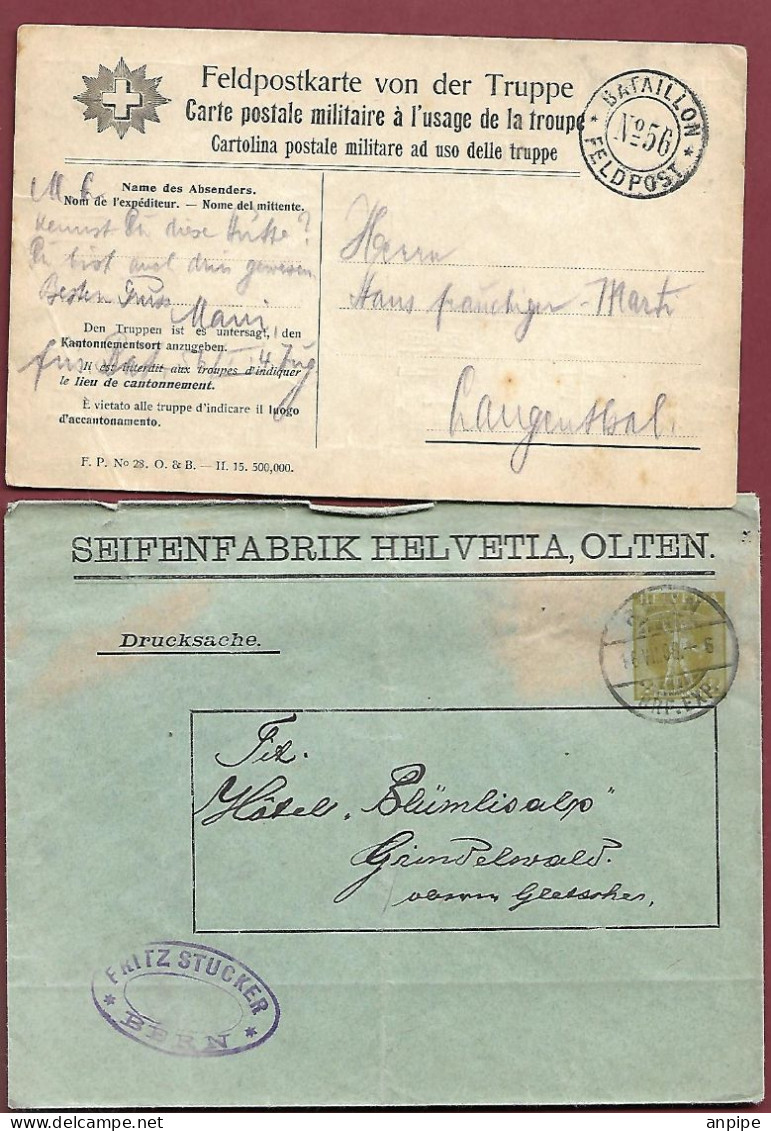 Feldpostkarte von der Truppe
Carte postale militaire à l'usage de la troupe
Cartolina postale militare ad uso delle truppe
BATAILLON
No 56
FELDPOST
Name des Absenders.
Nom de l'expéditeur. — Nome del mittente.
kennst Du diese Hütte?
Du bist auch drin gewesen
Besten Gruss
Den Truppen ist es untersagt, den
Kantonnementsort anzugeben.
Il est interdit aux troupes d'indiquer
le lieu de cantonnement.
È vietato alle truppe d'indicare il luogo
d'accantonamento.
F. P. No 28. O. & B. — II. 15. 500,000.
Herrn
Hans
Langenthal.
SEIFENFABRIK HELVETIA, OLTEN.
Drucksache.
BRF. EXP.
Tit.
Hôtel „Blümlisalp"
Grindelwald.
Gletscher,
FRITZ STUCKER
BERN
anpipe
www.delcampe.net